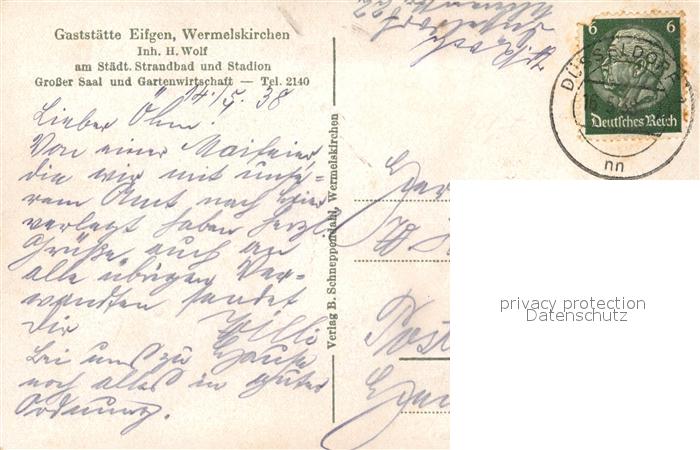 Gaststätte Eifgen, Wermelskirchen
Inh. H. Wolf
am Städt. Strandbad und Stadion
Großer Saal und Gartenwirtschaft — Tel. 2140
14./5. 38
Lieber Ohm!
Von einer Maifeier
die wir mit unse-
rem Amt nach hier
verlegt haben herzl.
Grüße auch an
alle übrigen Ver-
wandten sendet
Dir Willi
Bei uns zu Hause
noch alles in guter
Ordnung.
Verlag B. Schneppendahl, Wermelskirchen
6 6
Deutsches Reich
DÜSSELDORF
nn
Post
privacy protection
Datenschutz